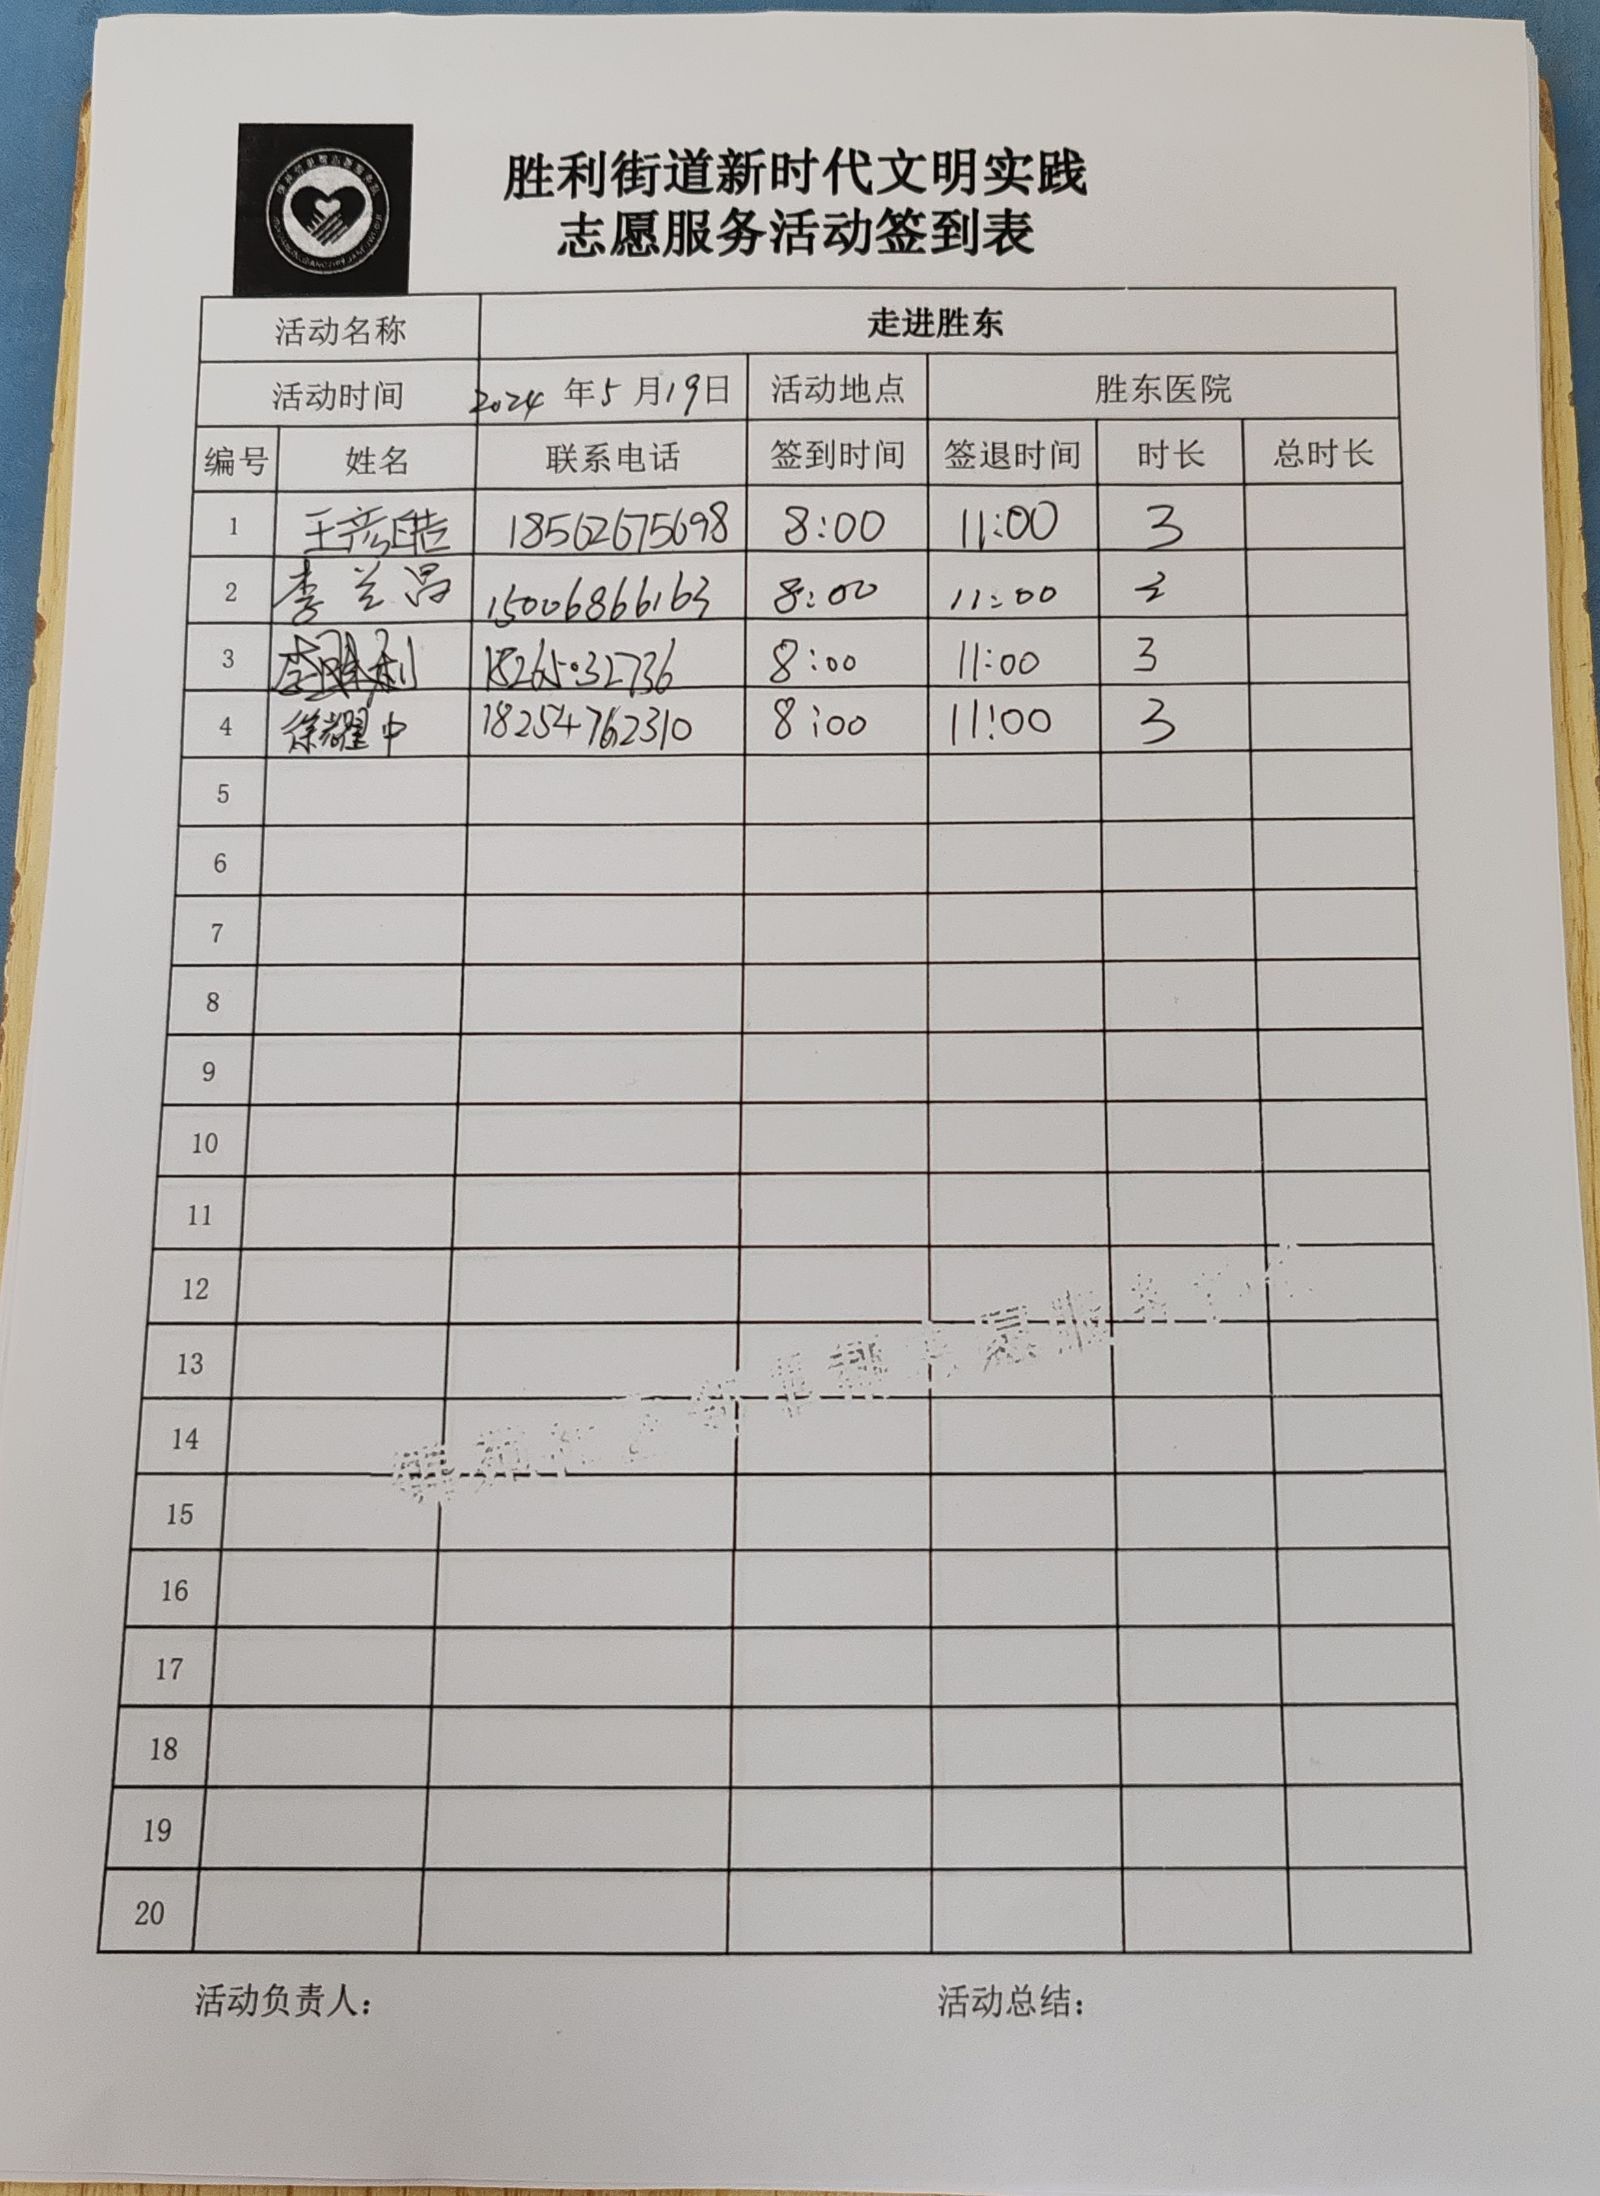 胜利街道新时代文明实践
志愿服务活动签到表
活动名称 走进胜东
活动时间 2024 年 5 月 19 日 活动地点 胜东医院
编号 姓名 联系电话 签到时间 签退时间 时长 总时长
1 王彦皓 18562675698 8:00 11:00 3
2 李兰昌 15006866163 8:00 11:00 3
3 李胜利 8:00 11:00 3
4 徐耀中 18254762310 8:00 11:00 3
5
6
7
8
9
10
11
12
13
14
15
16
17
18
19
20
活动负责人: 活动总结: